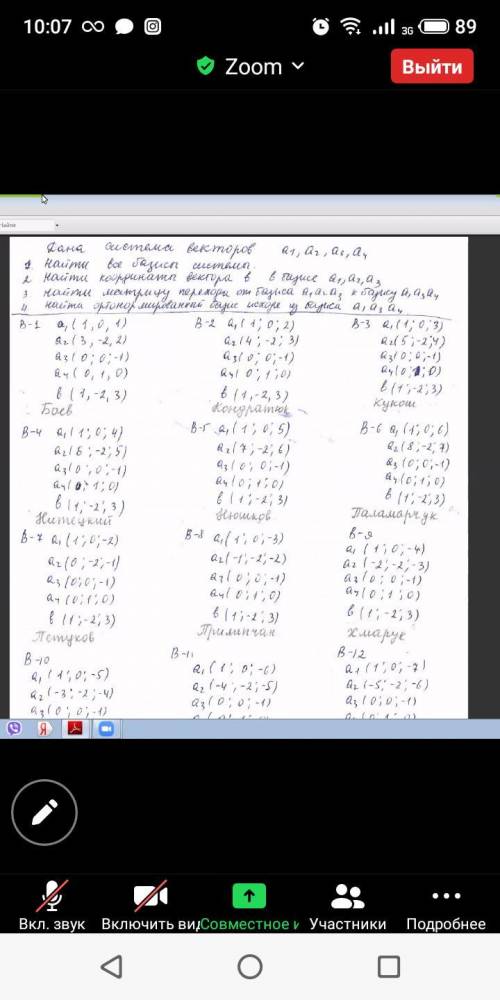 10:07 3G 89
Zoom
Выйти
Дана система векторов a1, a2, a3, a4
1. Найти все базисы системы.
2 Найти координаты вектора в в базисе a1, a2, a3
3 Найти матрицу перехода от базиса a1 a2 a3 к базису a1 a3 a4
4. Найти ортонормированный базис исходя из базиса a1 a3 a4
В-1 a1 (1, 0, 1)
a2 (3, -2, 2)
a3 (0; 0; -1)
a4 (0, 1, 0)
в (1, -2, 3)
Боев
В-2 a1 (1; 0; 2)
a2 (4; -2; 3)
a3 (0; 0; -1)
a4 (0; 1; 0)
в (1, -2, 3)
Кондратюк
В-3 a1 (1; 0; 3)
a2 (5; -2; 4)
a3 (0; 0; -1)
a4 (0; 1; 0)
в (1; -2; 3)
Кукош
В-4 a1 (1; 0; 4)
a2 (6; -2; 5)
a3 (0; 0; -1)
a4 (0; 1; 0)
в (1; -2; 3)
Нитецкий
В-5 a1 (1; 0; 5)
a2 (7; -2; 6)
a3 (0; 0; -1)
a4 (0; 1; 0)
в (1; -2; 3)
Нюшков
В-6 a1 (1; 0; 6)
a2 (8; -2; 7)
a3 (0; 0; -1)
a4 (0; 1; 0)
в (1; -2; 3)
Паламарчук
В-7 a1 (1; 0; -2)
a2 (0; -2; -1)
a3 (0; 0; -1)
a4 (0; 1; 0)
в (1; -2; 3)
Петуков
В-8 a1 (1; 0; -3)
a2 (-1; -2; -2)
a3 (0; 0; -1)
a4 (0; 1; 0)
в (1; -2; 3)
Прилипчан
В-9
a1 (1; 0; -4)
a2 (-2; -2; -3)
a3 (0; 0; -1)
a4 (0; 1; 0)
в (1; -2; 3)
Хмарук
В-10
a1 (1; 0; -5)
a2 (-3; -2; -4)
a3 (0; 0; -1)
В-11
a1 (1; 0; -6)
a2 (-4; -2; -5)
a3 (0; 0; -1)
В-12
a1 (1; 0; -7)
a2 (-5; -2; -6)
a3 (0; 0; -1)
Вкл. звук
Включить вид
Совместное и
Участники
Подробнее